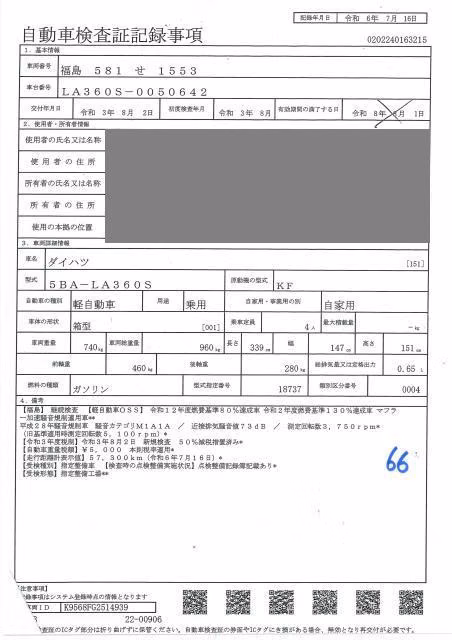 記録年月日 令和 6年 7月 16日
自動車検査証記録事項
0202240163215
1. 基本情報
車両番号 福島 581 せ 1553
車台番号 LA360S-0050642
交付年月日 令和 3年 8月 2日 初度検査年月 令和 3年 8月 有効期間の満了する日 令和 8年 8月 1日
2. 使用者・所有者情報
使用者の氏名又は名称
使用者の住所
所有者の氏名又は名称
所有者の住所
使用の本拠の位置
3. 車両詳細情報
車名 ダイハツ [151]
型式 5BA-LA360S 原動機の型式 KF
自動車の種別 軽自動車 用途 乗用 自家用・事業用の別 自家用
車体の形状 箱型 [001] 乗車定員 4人 最大積載量 -kg
車両重量 740kg 車両総重量 960kg 長さ 339cm 幅 147cm 高さ 151cm
前軸重 460kg 後軸重 280kg 総排気量又は定格出力 0.65 L
燃料の種類 ガソリン 型式指定番号 18737 類別区分番号 0004
4. 備考
【福島】 継続検査 【軽自動車OSS】 令和12年度燃費基準80%達成車 令和2年度燃費基準130%達成車 マフラ
ー加速騒音規制適用車**
平成28年騒音規制車 騒音カテゴリM1A1A / 近接排気騒音値73dB / 測定回転数3,750rpm*
(旧基準適用時測定回転数5,100rpm)*
【令和3年度税制】令和3年8月2日 新規検査 50%減税措置済み*
【自動車重量税額】¥5,000 本則税率適用*
【走行距離計表示値】57,300km(令和6年7月16日)*
【受検種別】指定整備車 【検査時の点検整備実施状況】点検整備記録簿記載あり*
【受検形態】指定整備工場**
66
注意事項】
録事項はシステム登録時点の情報となります
車両ID K9568FG2514939
22-00906
検査証のICタグ部分は折り曲げずに保管ください。自動車検査証の券面やICタグにき損がある場合、無効となり再交付が必要です。